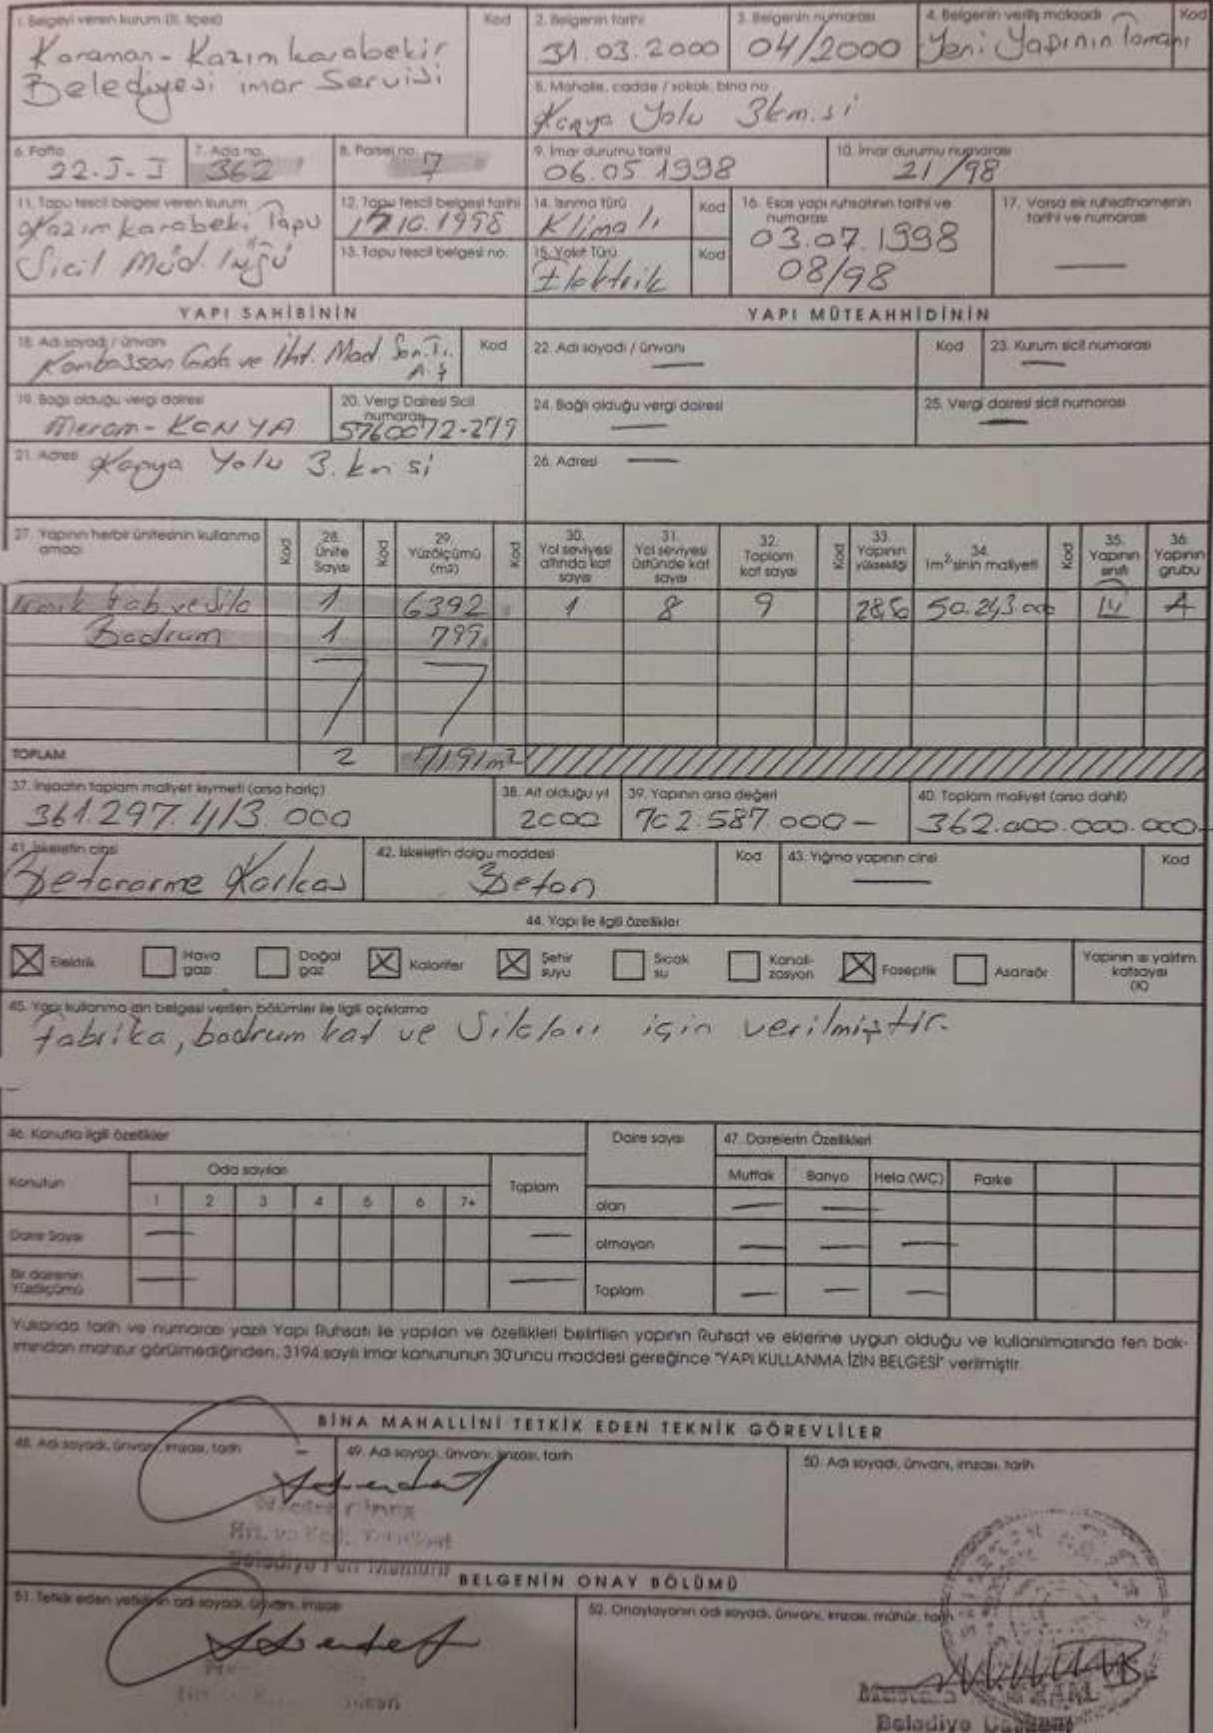 1. Belgeyi veren kurum (İl, ilçesi)
Kod
Karaman - Kazımkarabekir
Belediyesi imar Servisi
2. Belgenin tarihi
31.03.2000
3. Belgenin numarası
04/2000
4. Belgenin veriliş maksadı
Kod
Yeni Yapının tamamı
5. Mahalle, cadde / sokak, bina no
Konya Yolu 3km.si
6. Pafta
22-J-I
7. Ada no.
362
8. Parsel no.
7
9. İmar durumu tarihi
06.05.1998
10. İmar durumu numarası
21/98
11. Tapu tescil belgesi veren kurum
Kazımkarabekir Tapu
Sicil Müd. lüğü
12. Tapu tescil belgesi tarihi
10.1998
13. Tapu tescil belgesi no.
14. Isınma türü
Kod
Klimalı
15. Yakıt Türü
Kod
Elektrik
16. Esas yapı ruhsatının tarihi ve
numarası
03.07.1998
08/98
17. Varsa ek ruhsatnamenin
tarihi ve numarası
YAPI SAHİBİNİN
YAPI MÜTEAHHİDİNİN
18. Adı soyadı / ünvanı
Kod
Kombassan Gıda ve İht. Mad. San. Ti.
A.Ş
19. Bağlı olduğu vergi dairesi
Meram - KONYA
20. Vergi Dairesi Sicil
numarası
5760072-279
21. Adresi
Konya Yolu 3. km si
22. Adı soyadı / ünvanı
Kod
23. Kurum sicil numarası
24. Bağlı olduğu vergi dairesi
25. Vergi dairesi sicil numarası
26. Adresi
27. Yapının herbir ünitesinin kullanma
amacı
Kod
28. Ünite Sayısı
Kod
29. Yüzölçümü (m2)
Kod
30. Yol seviyesi altında kat sayısı
31. Yol seviyesi üstünde kat sayısı
32. Toplam kat sayısı
Kod
33. Yapının yüksekliği
34. 1m² sinin maliyeti
Kod
35. Yapının sınıfı
36. Yapının grubu
fab ve Silo 1 6392 1 8 9 28,6 50.243.000 IV A
Bodrum 1 799
TOPLAM 2 7191 m²
37. İnşaatın toplam maliyet kıymeti (arsa hariç)
361.297.413.000
38. Ait olduğu yıl
2000
39. Yapının arsa değeri
702.587.000-
40. Toplam maliyet (arsa dahil)
362.000.000.000-
41. İskeletin cinsi
Betonarme Karkas
42. İskeletin dolgu maddesi
Kod
Beton
43. Yığma yapının cinsi
Kod
44. Yapı ile ilgili özellikler
Elektrik
Hava gazı
Doğal gaz
Kalorifer
Şehir suyu
Sıcak su
Kanalizasyon
Foseptik
Asansör
Yapının ısı yalıtım
katsayısı
(K)
45. Yapı kullanma izin belgesi verilen bölümler ile ilgili açıklama
fabrika, bodrum kat ve Siloları için verilmiştir.
46. Konutla ilgili özellikler
Daire sayısı
47. Dairelerin Özellikleri
Konutun
Oda sayıları
Toplam
Mutfak
Banyo
Hela (WC)
Parke
1 2 3 4 5 6 7+
olan
Daire Sayısı
olmayan
Bir dairenin
Yüzölçümü
Toplam
Yukarıda tarih ve numarası yazılı Yapı Ruhsatı ile yapılan ve özellikleri belirtilen yapının Ruhsat ve eklerine uygun olduğu ve kullanılmasında fen bak-
ımından mahzur görülmediğinden, 3194 sayılı imar kanununun 30'uncu maddesi gereğince "YAPI KULLANMA İZİN BELGESİ" verilmiştir.
BİNA MAHALLİNİ TETKİK EDEN TEKNİK GÖREVLİLER
48. Adı soyadı, ünvanı, imzası, tarih
49. Adı soyadı, ünvanı, imzası, tarih
50. Adı soyadı, ünvanı, imzası, tarih
Belediye Fen Memuru
BELGENİN ONAY BÖLÜMÜ
51. Tetkik eden yetkilinin adı soyadı, ünvanı, imzası
52. Onaylayanın adı soyadı, ünvanı, imzası, mühür, tarih
Belediye Başkanı